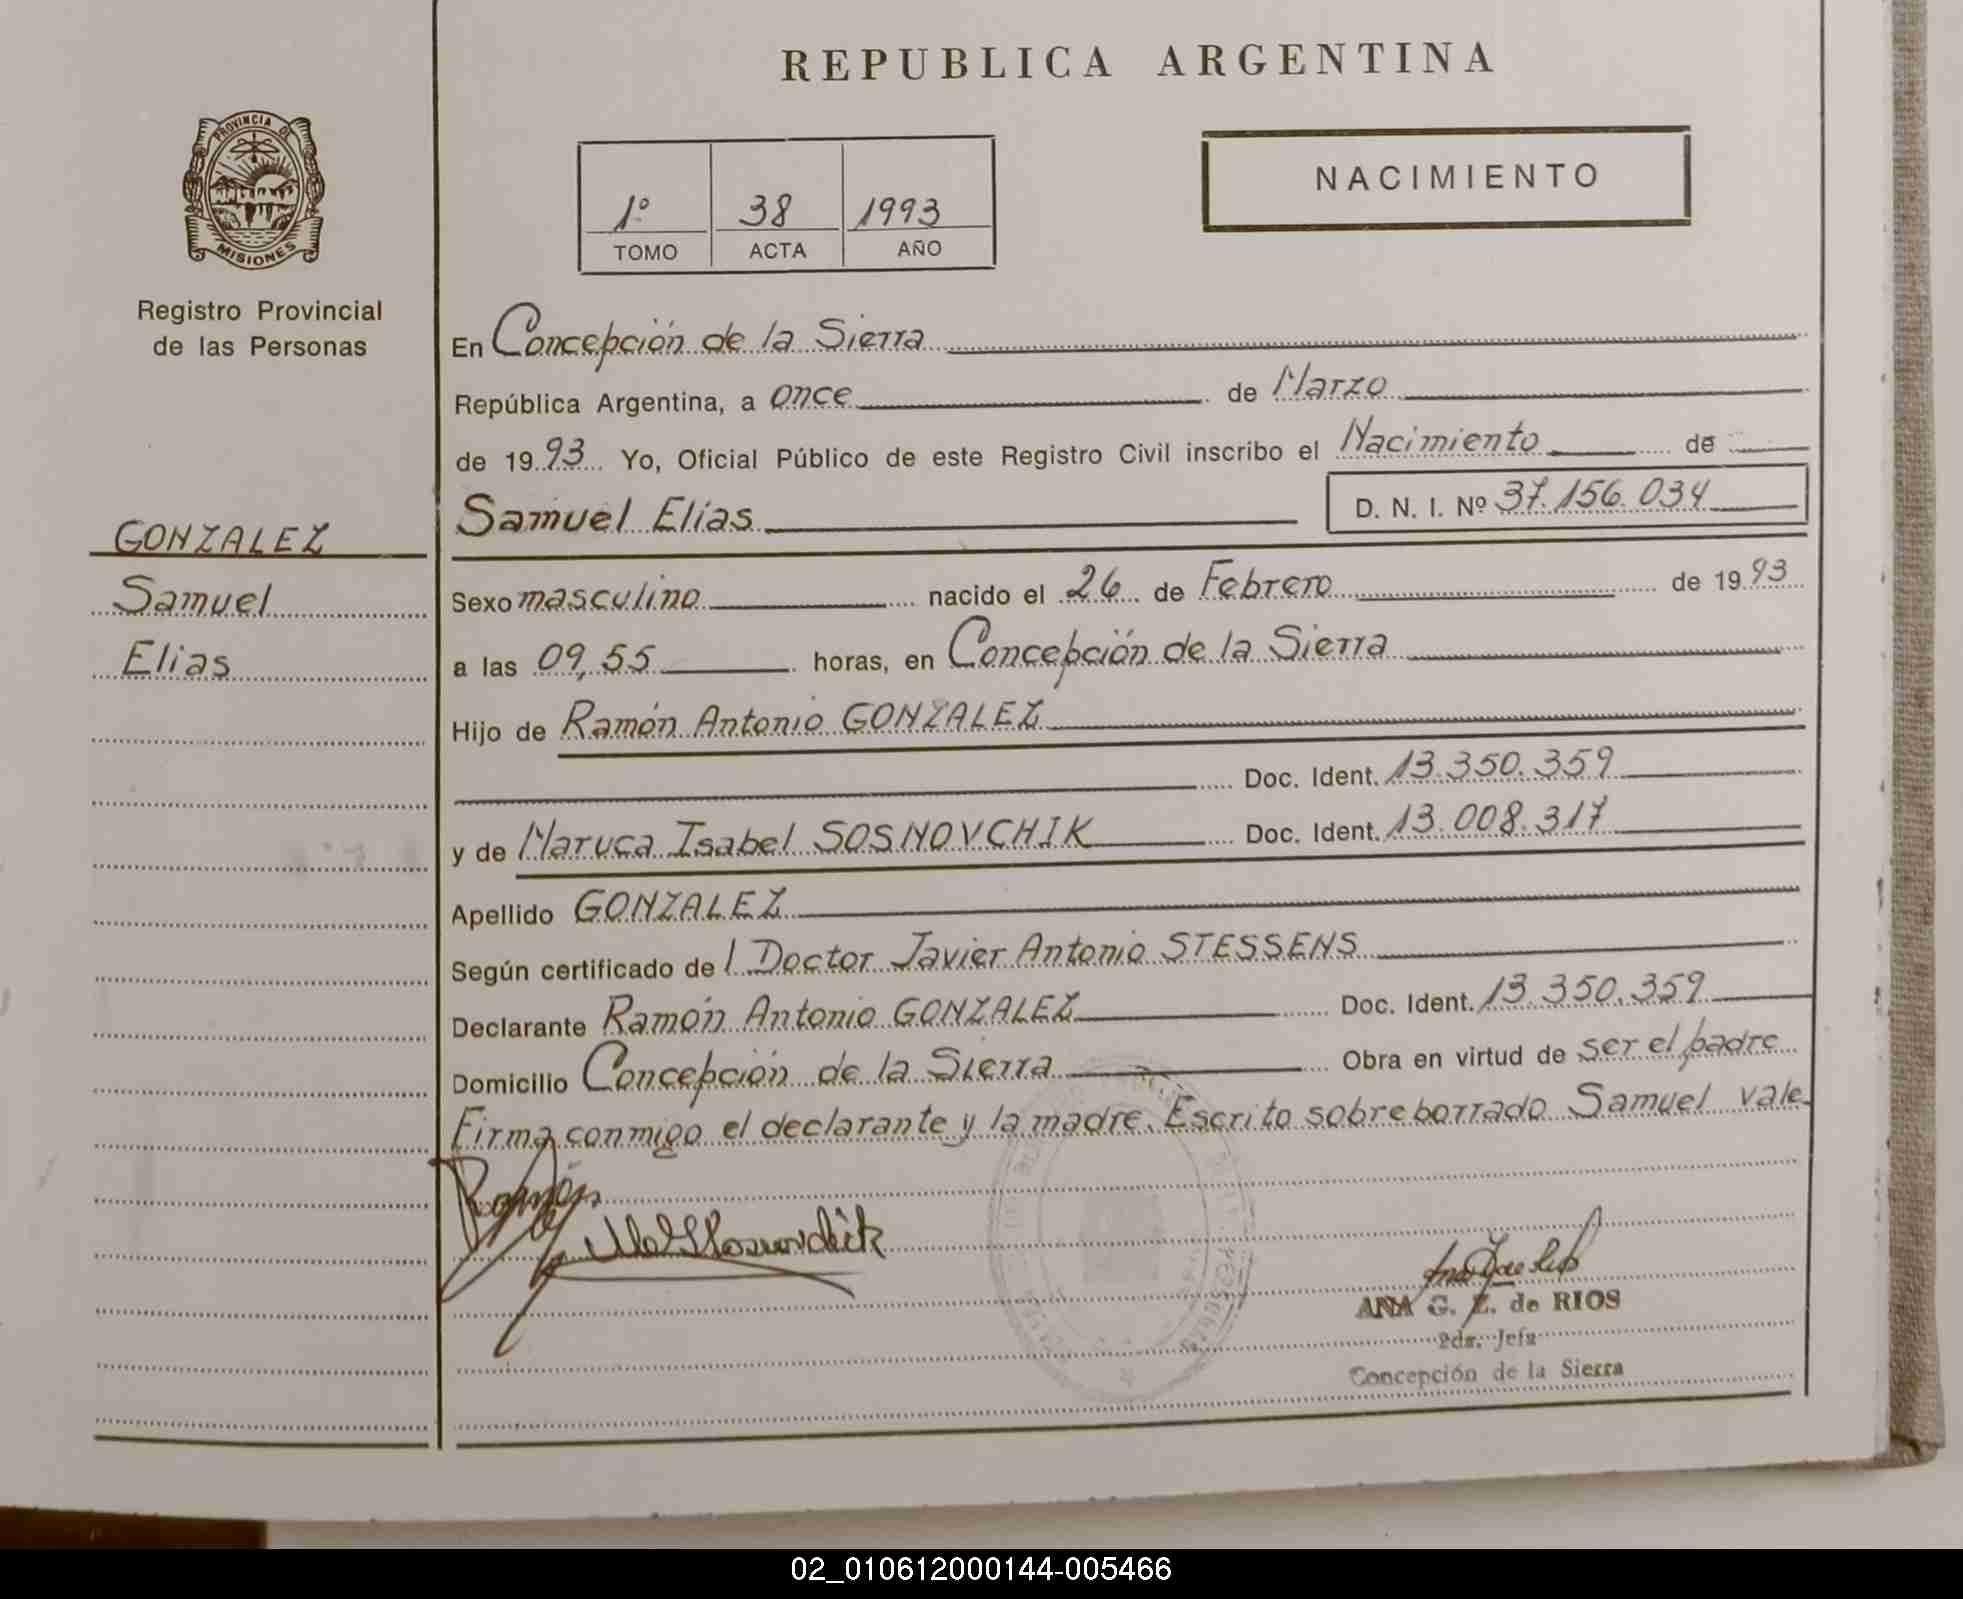 REPUBLICA ARGENTINA
PROVINCIA DE
MISIONES
Registro Provincial
de las Personas
1º 38 1993
TOMO ACTA AÑO
NACIMIENTO
En Concepción de la Sierra
República Argentina, a once de Marzo
de 1993 Yo, Oficial Público de este Registro Civil inscribo el Nacimiento de
Samuel Elias D. N. I. Nº 37.156.034
GONZALEZ
Samuel
Elias
Sexo masculino nacido el 26 de Febrero de 1993
a las 09,55 horas, en Concepción de la Sierra
Hijo de Ramón Antonio GONZALEZ
Doc. Ident. 13.350.359
y de Maruca Isabel SOSNOVCHIK Doc. Ident. 13.008.317
Apellido GONZALEZ
Según certificado del Doctor Javier Antonio STESSENS
Declarante Ramón Antonio GONZALEZ Doc. Ident. 13.350.359
Domicilio Concepción de la Sierra Obra en virtud de ser el padre
Firma conmigo el declarante y la madre. Escrito sobreborrado Samuel vale
Ramón
ANA G. Z. de RIOS
2da. Jefa
Concepción de la Sierra
02_010612000144-005466